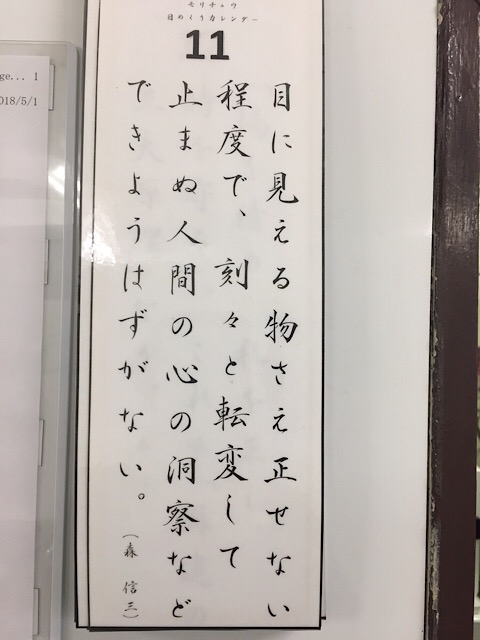 モリチュウ
日めくりカレンダー
11
目に見える物さえ正せない
程度で、刻々と転変して
止まぬ人間の心の洞察など
できようはずがない。
（森 信三）
ge... 1
018/5/1